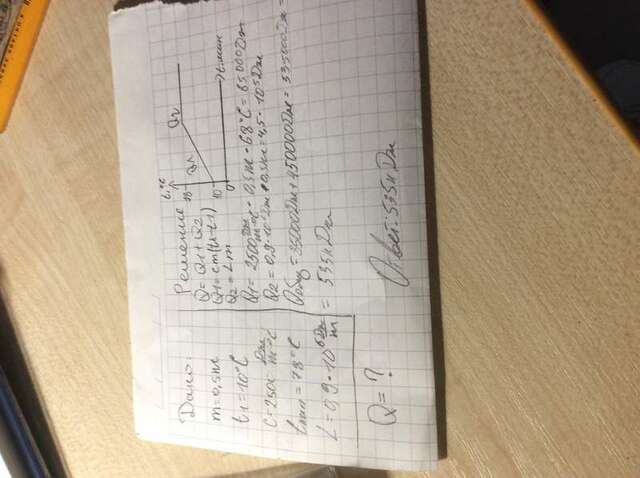 Дано:
m=0,5кг
t1=10°C
C=2500 Дж/кг°C
tкип=78°C
L=0,9·10⁶ Дж/кг
Q=?
Решение
Q=Q1+Q2
Q1=cm(t2-t1)
Q2=Lm
Q1=2500 Дж/кг°C · 0,5кг · 68°C=85000Дж
Q2=0,9·10⁶Дж·0,5кг=4,5·10⁵Дж
Qобщ=85000Дж+450000Дж=535000Дж=
=535кДж
Ответ:535кДж
t,°C
78
10
0
Q1
Q2
t,мин